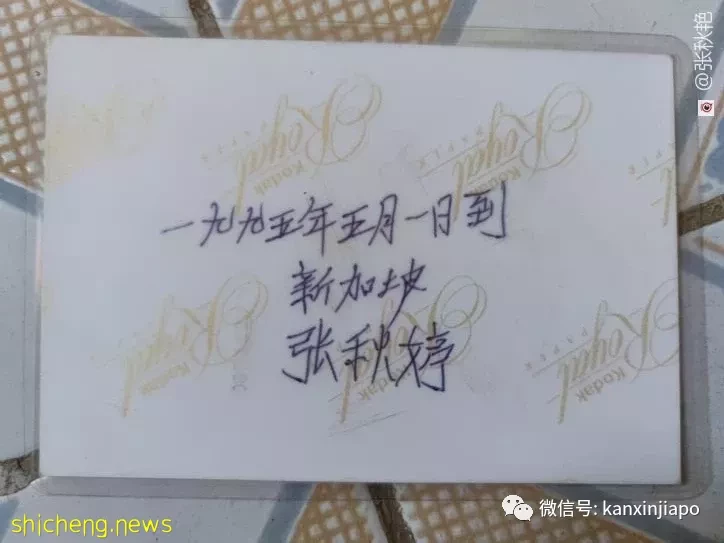 @张秋艳
一九九五年五月一日到
新加坡
张秋婷
Kodak
Royal
PAPER
Kodak
Royal
PAPER
Kodak
Royal
PAPER
Kodak
Royal
Kodak
Royal
PAPER
Kodak
Royal
微信号: kanxinjiapo
shicheng.news